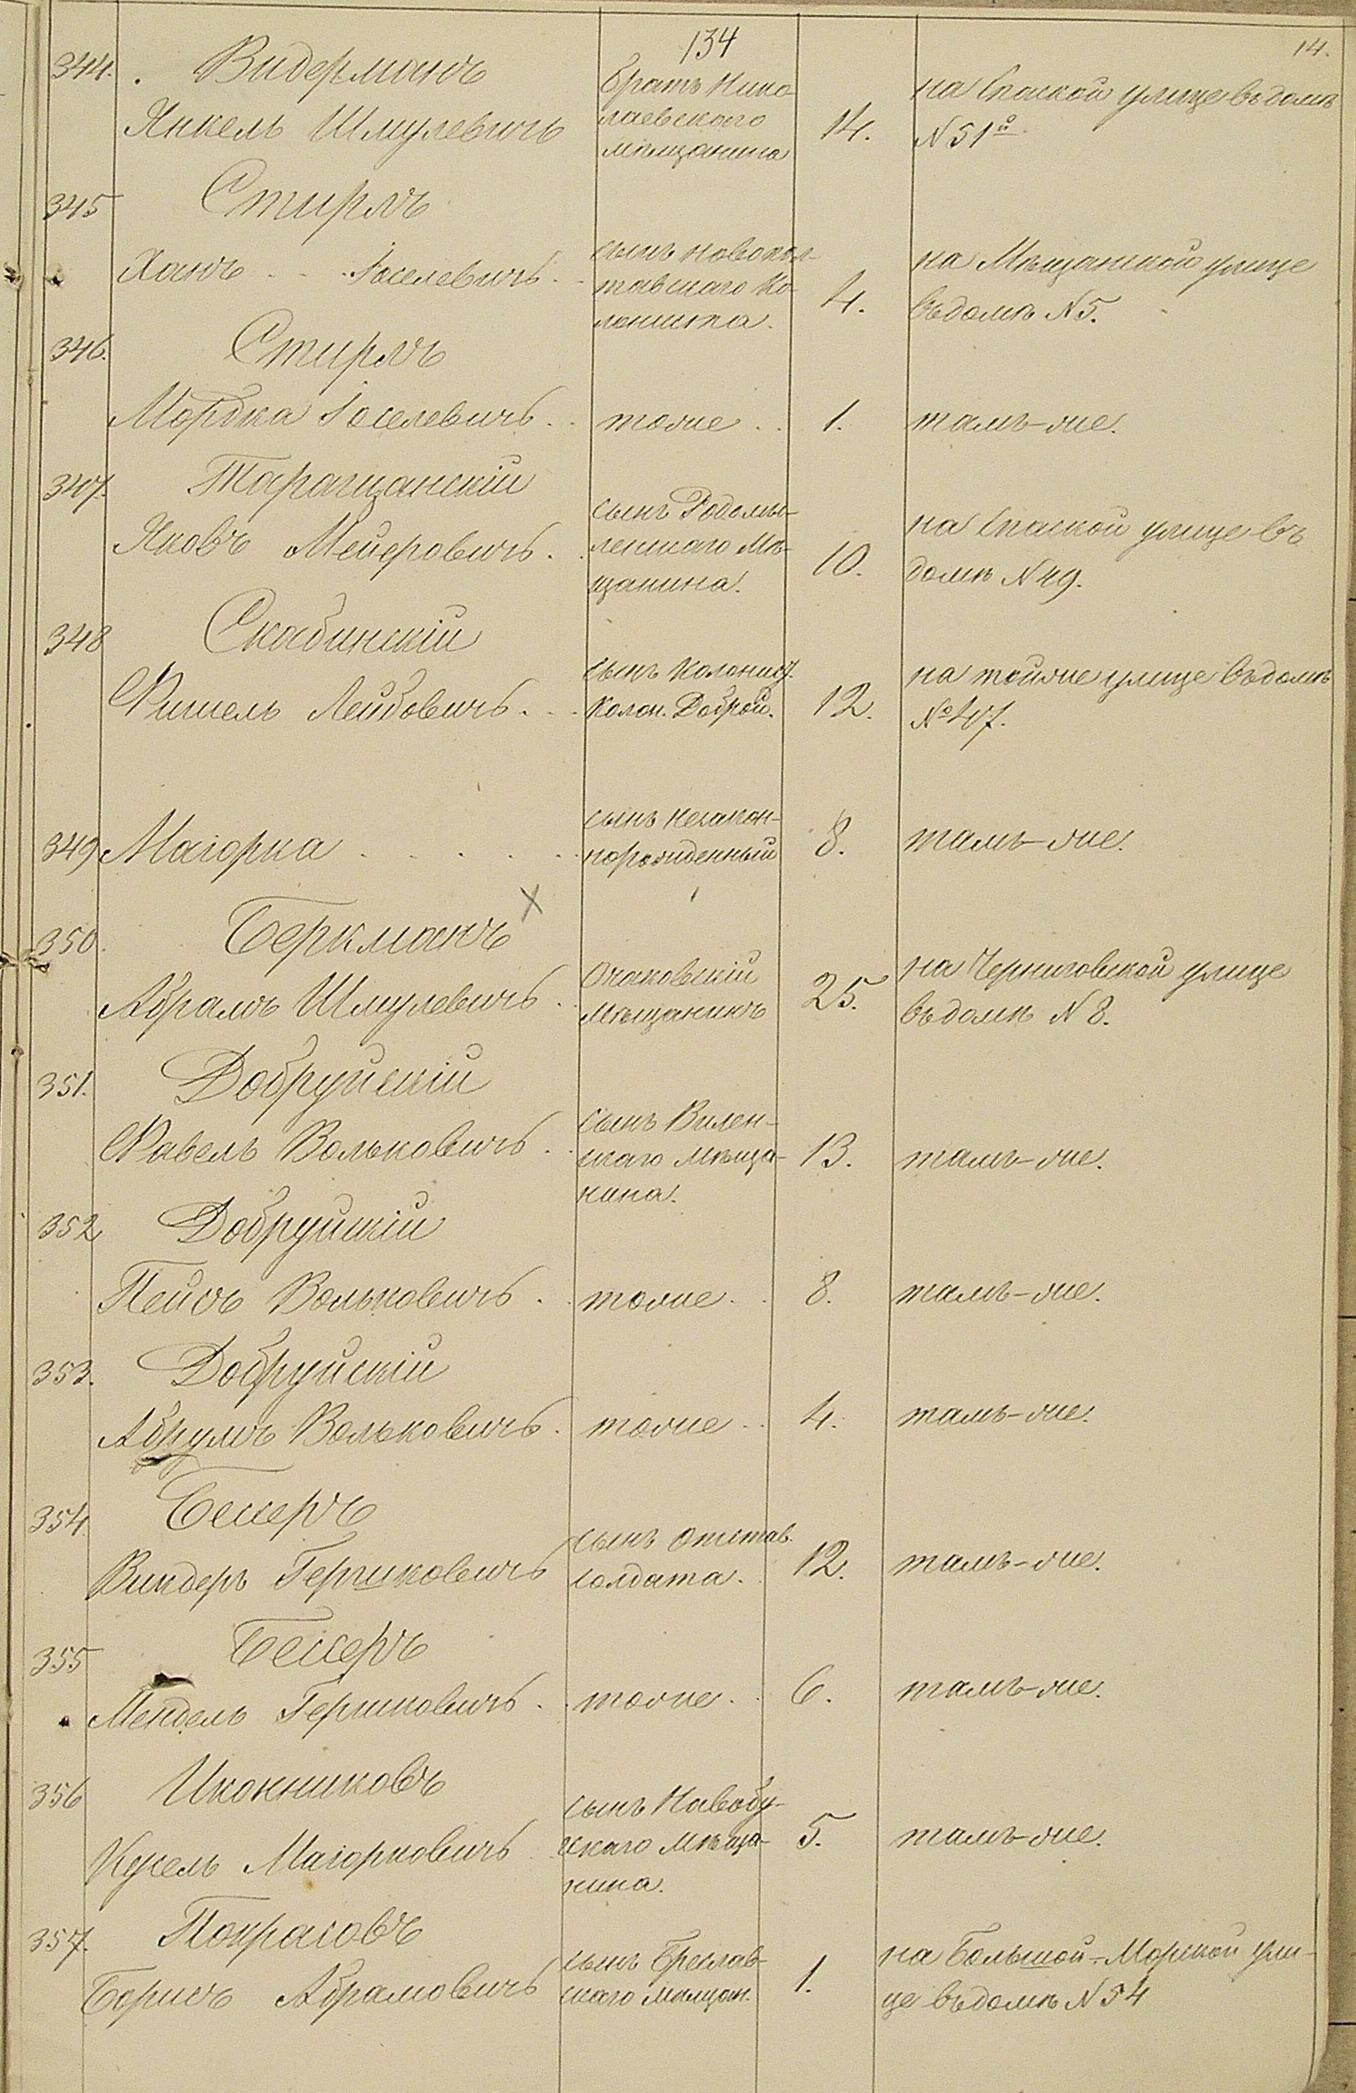 134
14.
344. Видерманъ
Янкель Шмулевичъ
братъ Нико-
лаевского
мѣщанина
14.
на Спаской улице въ домѣ
N 51й
345 Стирлъ
Хаимъ Іоселевичъ
сынъ Новопол-
тавскаго Ко-
лониста.
4.
на Мѣщанской улице
въ домѣ N 5.
346. Стирлъ
Мордка Іоселевичъ
тоже
1.
тамъ-же.
347. Таращанскій
Яковъ Мейеровичъ
сынъ Радомы-
сленскаго Мѣ-
щанина.
10.
на Спаской улице въ
домѣ N 49.
348 Скабинскій
Фишель Лейбовичъ
сынъ Колонист.
Колон. Доброй.
12.
на тойже улице въ домѣ
№ 47.
349 Маіорка
сынъ незакон-
норожденный
8.
тамъ-же.
350. Беркманъ
Абрамъ Шмулевичъ
Очаковскій
Мѣщанинъ
25.
на Черниговской улице
въ домѣ N 8.
351. Добруйскій
Фавель Вольковичъ
сынъ Вилен-
скаго мѣща-
нина.
13.
тамъ-же.
352 Добруйскій
Пейсъ Вольковичъ
тоже
8.
тамъ-же.
353. Добруйскій
Абрумъ Вольковичъ
тоже
4.
тамъ-же.
354 Бессеръ
Виндеръ Гершковичъ
сынъ отстав.
солдата.
12.
тамъ-же.
355 Бессеръ
Мендель Гершковичъ
тоже
6.
тамъ-же.
356 Иконниковъ
Кусель Маіорковичъ
сынъ Новобу-
скаго мѣща-
нина.
5.
тамъ-же.
357. Покрасовъ
Борисъ Абрамовичъ
сынъ Бреслав-
скаго мѣщан.
1.
на Большой-Морской ули-
це въ домѣ N 54